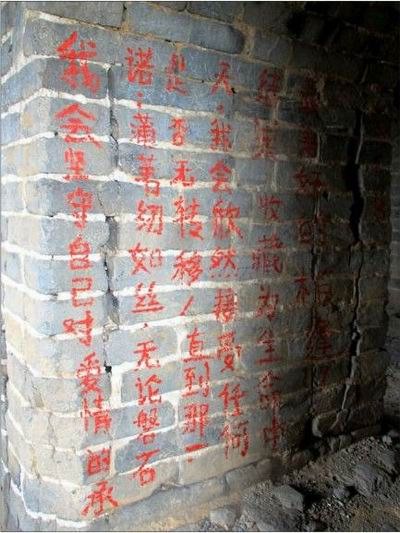 我会坚守自己对爱情的承
诺，蒲善纫如丝，无论磐石
是否无转移，直到那一
天，我会欣然接受任何
结果 收藏为生命中
最美好 相逢！